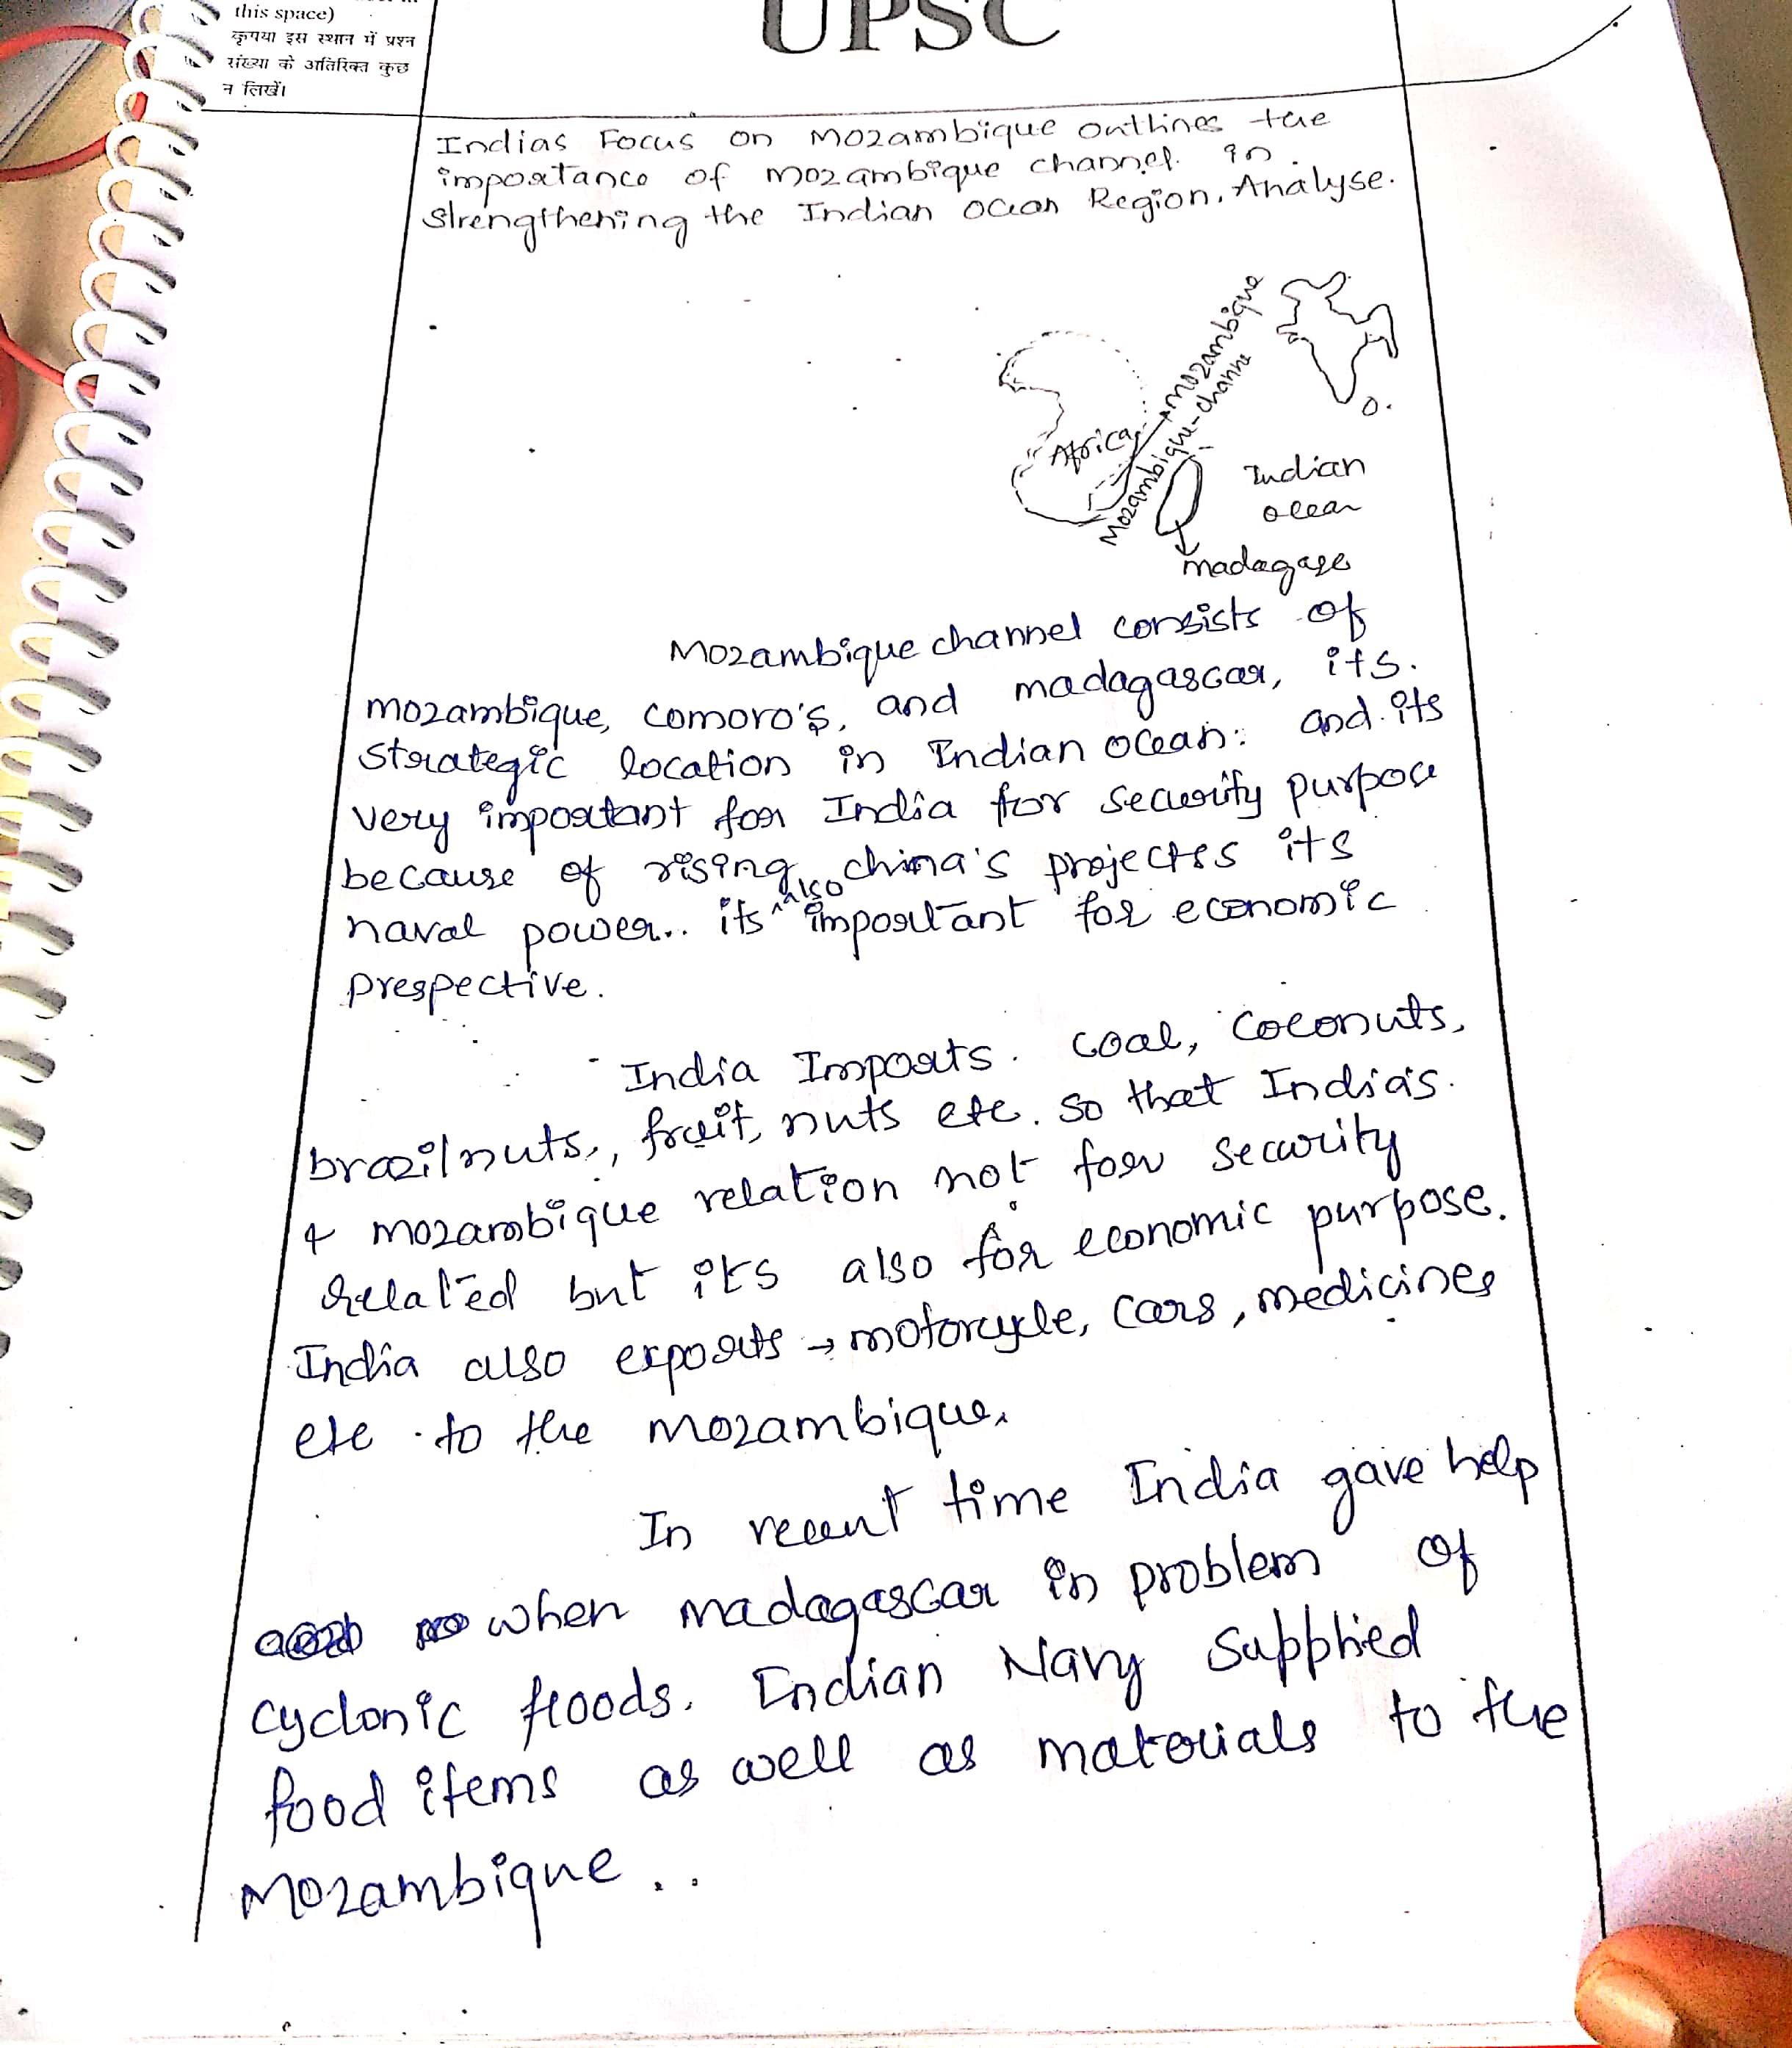 this space)
कृपया इस स्थान में प्रश्न
संख्या के अतिरिक्त कुछ
न लिखें।
UPSC
Indias Focus on Mozambique outlines the
importance of mozambique channel in
strengthening the Indian ocean Region. Analyse.
Mozambique
Mozambique-channe
Africa
Indian
ocean
madagase
Mozambique channel consists of
mozambique, comoro's, and madagascar, its
strategic location in Indian ocean: and its
very important for India for security purpose
because of rising china's projectes its
naval power.. its also important for economic
prespective.
India Imports coal, coconuts,
brazilnuts, fruit, nuts etc. so that India's
& mozambique relation not for security
related but its also for economic purpose.
India also exports → motorcycle, cars, medicines
etc to the mozambique.
In recent time India gave help
when madagascar in problem of
cyclonic floods. Indian Navy supplied
food items as well as materials to the
Mozambique..